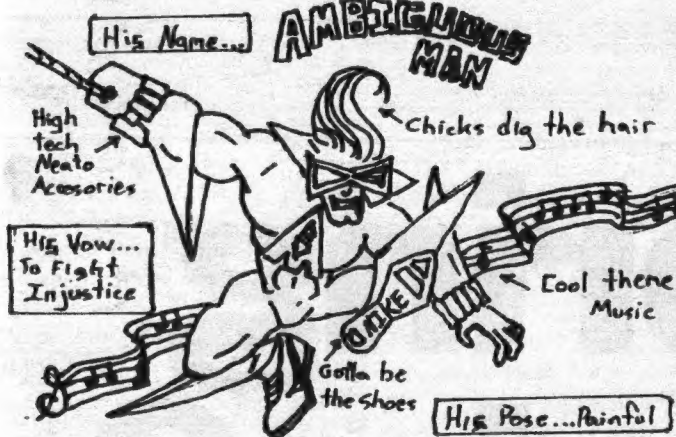 His Name...
AMBIGUOUS
MAN
High
tech
Neato
Accesories
Chicks dig the hair
His Vow...
To Fight
Injustice
Cool theme
Music
NIKE
Gotta be
the shoes
His Pose...Painful